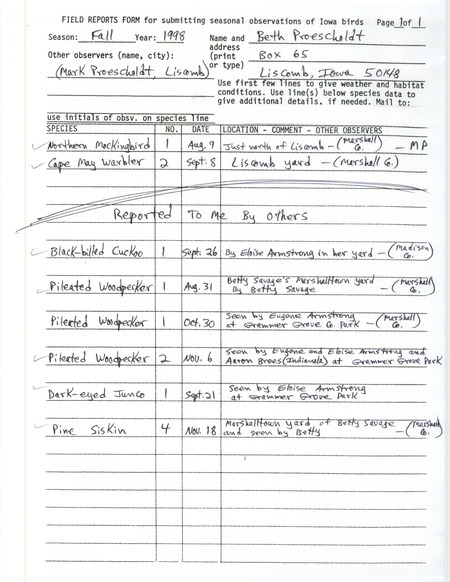 FIELD REPORTS FORM for submitting seasonal observations of Iowa birds Page 1 of 1
Season: Fall Year: 1998 Name and Beth Proescholdt
address
Other observers (name, city): (print Box 65
(Mark Proescholdt, Liscomb) or type) Liscomb, Iowa 50148
Use first few lines to give weather and habitat
conditions. Use line(s) below species data to
give additional details. if needed. Mail to:
use initials of obsv. on species line
SPECIES NO. DATE LOCATION - COMMENT - OTHER OBSERVERS
Northern Mockingbird 1 Aug. 9 Just north of Liscomb - (Marshall Co.) - MP
Cape May Warbler 2 Sept. 8 Liscomb yard - (Marshall Co.)
Reported To Me By Others
Black-billed Cuckoo 1 Sept. 26 By Eloise Armstrong in her yard - (Madison Co.)
Pileated Woodpecker 1 Aug. 31 Betty Savage's Marshalltown yard
By Betty Savage - (Marshall Co.)
Pileated Woodpecker 1 Oct. 30 Seen by Eugene Armstrong
at Grammer Grove Co. Park - (Marshall Co.)
Pileated Woodpecker 2 Nov. 6 Seen by Eugene and Eloise Armstrong and
Aaron Brees (Indianola) at Grammer Grove Park
Dark-eyed Junco 1 Sept. 21 Seen by Eloise Armstrong
at Grammer Grove Park
Pine Siskin 4 Nov. 18 Marshalltown yard of Betty Savage
and seen by Betty - (Marshall Co.)